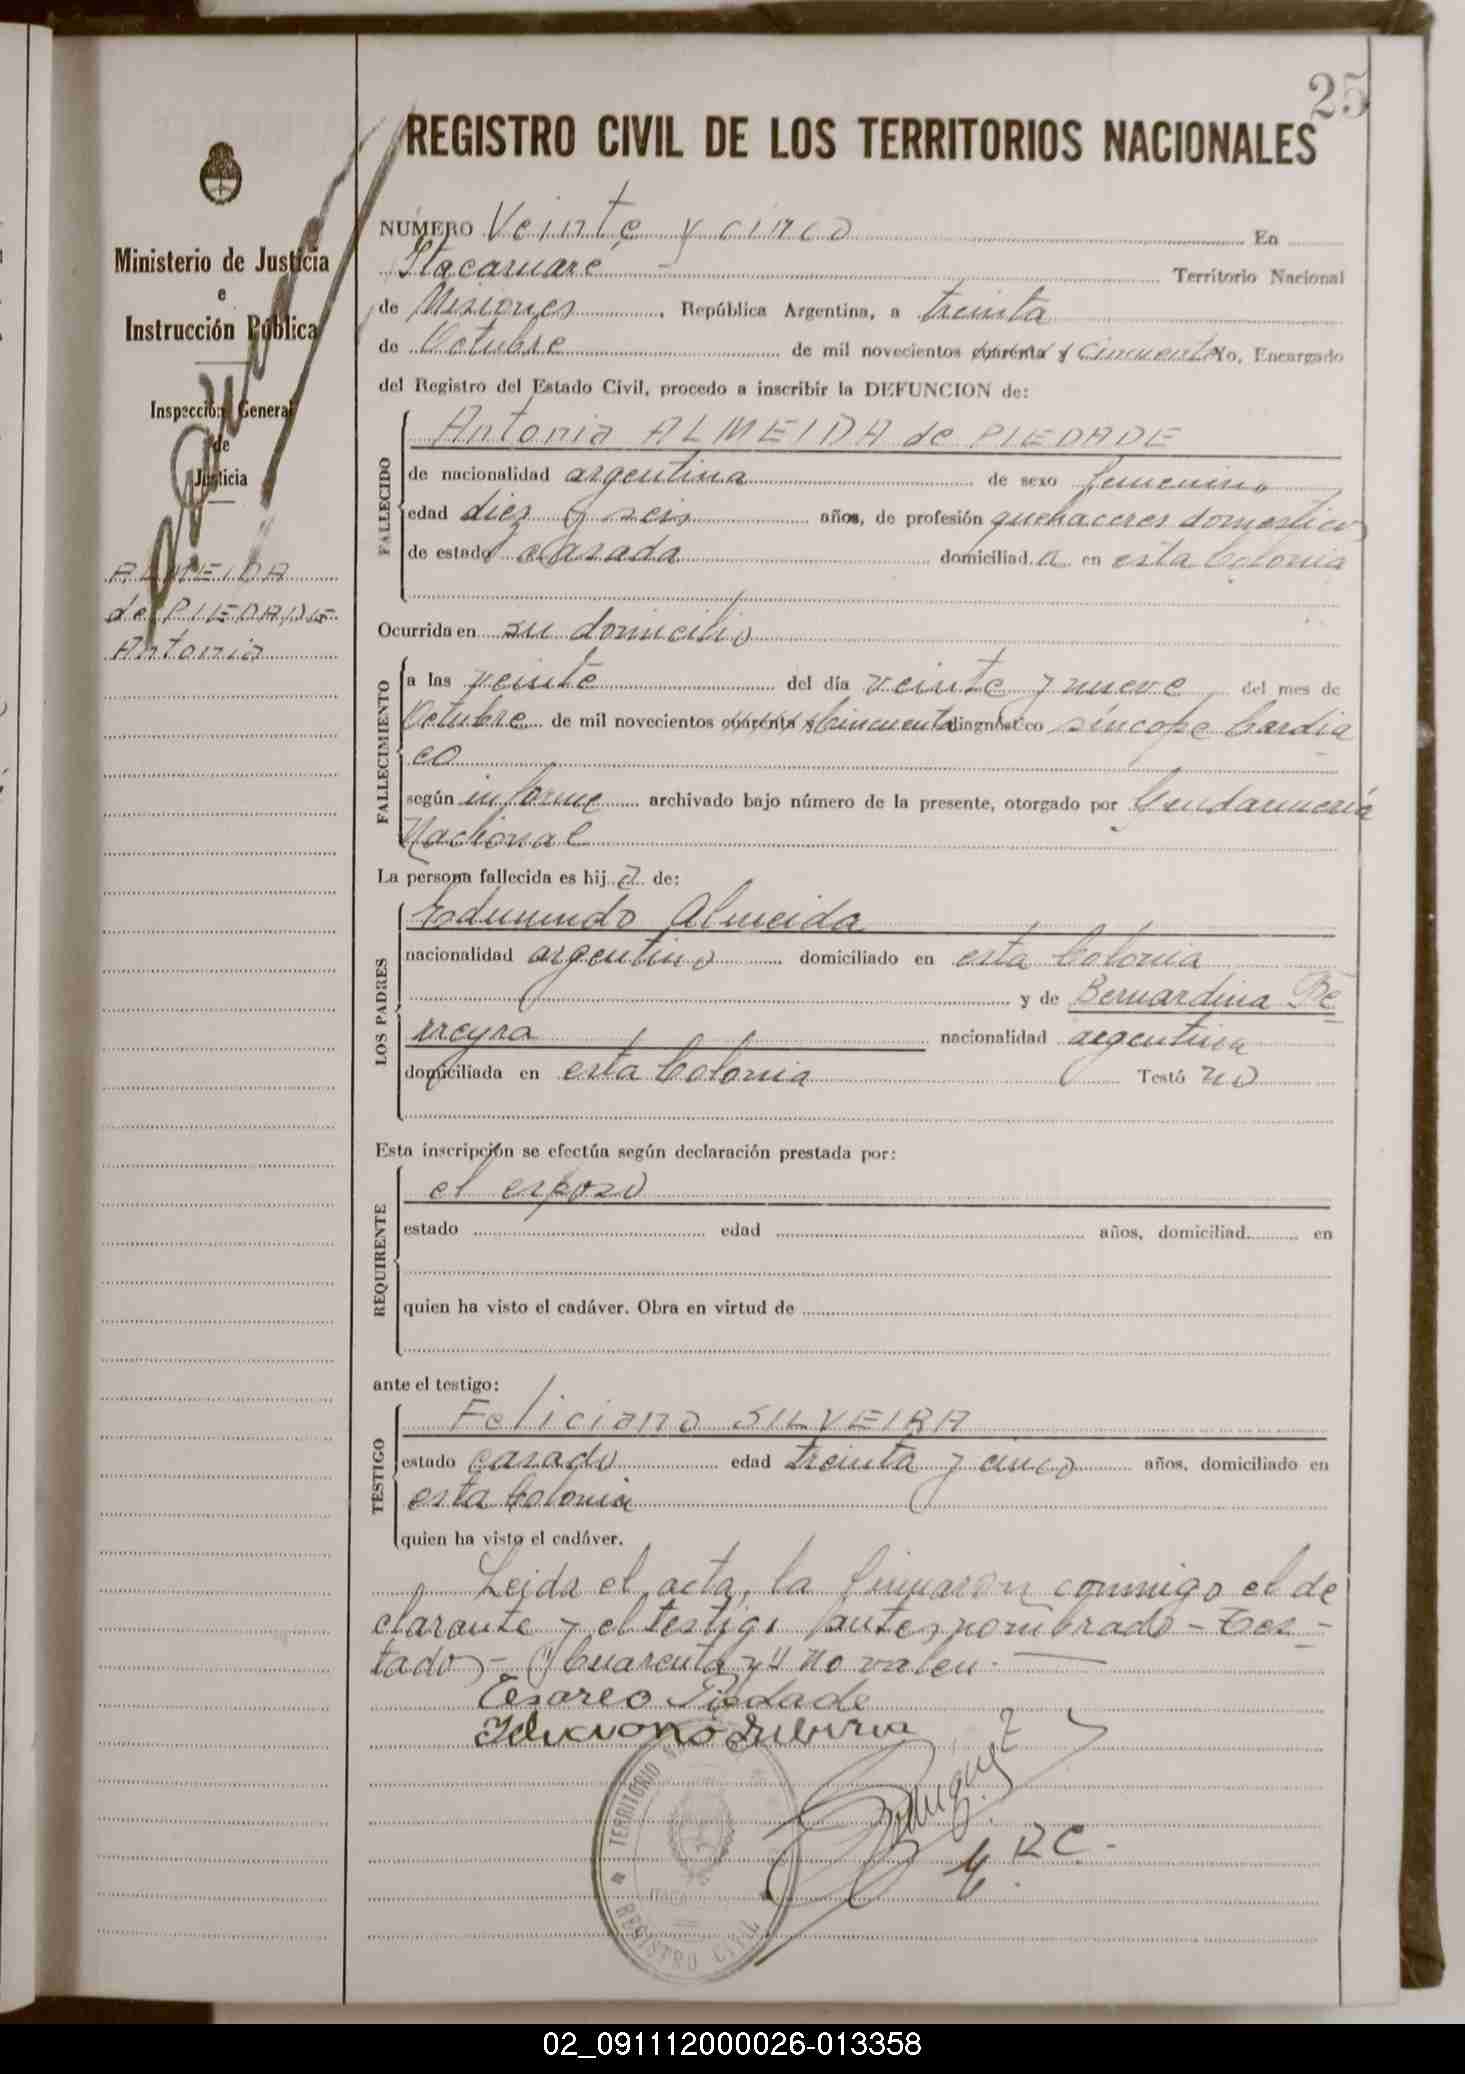 25
REGISTRO CIVIL DE LOS TERRITORIOS NACIONALES
Ministerio de Justicia
e
Instrucción Pública
Inspección General
de
Justicia
ALMEIDA
de PIEDADE
Antonia
NÚMERO Veinte y cinco En
Itacaruare Territorio Nacional
de Misiones, República Argentina, a treinta
de Octubre de mil novecientos cuarenta y cincuenta Yo, Encargado
del Registro del Estado Civil, procedo a inscribir la DEFUNCION de:
FALLECIDO
Antonia ALMEIDA de PIEDADE
de nacionalidad argentina de sexo femenino
edad diez y seis años, de profesión quehaceres domesticos
de estado casada domiciliad a en esta Colonia
Ocurrida en su domicilio
FALLECIMIENTO
a las veinte del día veinte y nueve del mes de
Octubre de mil novecientos cuarenta y Cincuenta diagnóstico síncope Cardia
co
según informe archivado bajo número de la presente, otorgado por Gendarmería
Nacional
La persona fallecida es hij a de:
LOS PADRES
Edmundo Almeida
nacionalidad argentino domiciliado en esta Colonia
y de Bernardina Fe
rreyra nacionalidad argentina
domiciliada en esta Colonia Testó no
Esta inscripción se efectúa según declaración prestada por:
REQUIRENTE
el esposo
estado edad años, domiciliad en
quien ha visto el cadáver. Obra en virtud de
ante el testigo:
TESTIGO
Feliciano SILVEIRA
estado casado edad treinta y cinco años, domiciliado en
esta Colonia
quien ha visto el cadáver.
Leida el acta, la firmaron conmigo el de
clarante y el testigo antes nombrado - Tes-
tado - "Cuarenta y" no valen.
Cesareo Piedade
Feliciano Silveira
E. R. C.
TERRITORIO
REGISTRO CIVIL
02_091112000026-013358